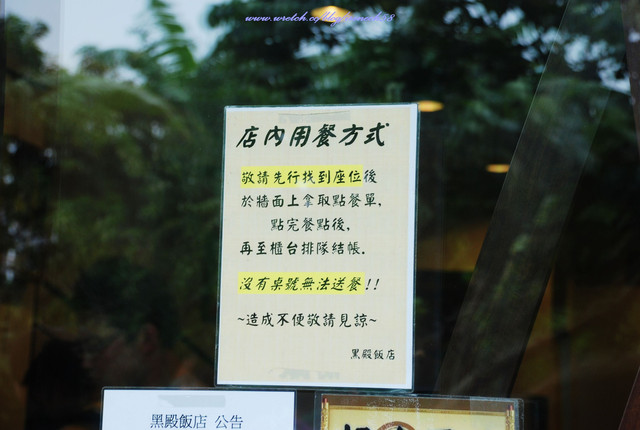 店內用餐方式
敬請先行找到座位後
於牆面上拿取點餐單,
點完餐點後,
再至櫃台排隊結帳.
沒有桌號無法送餐!!
~造成不便敬請見諒~
黑殿飯店
黑殿飯店 公告